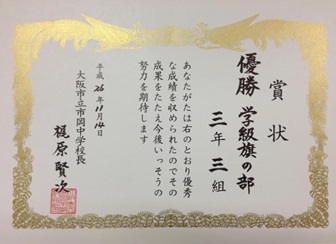 賞状
優勝 学級旗の部
三年三組
あなたがたは右のとおり優秀
な成績を収められたのでその
成果をたたえ今後いっそうの
努力を期待します
平成26年11月14日
大阪市立市岡中学校長
梶原賢次